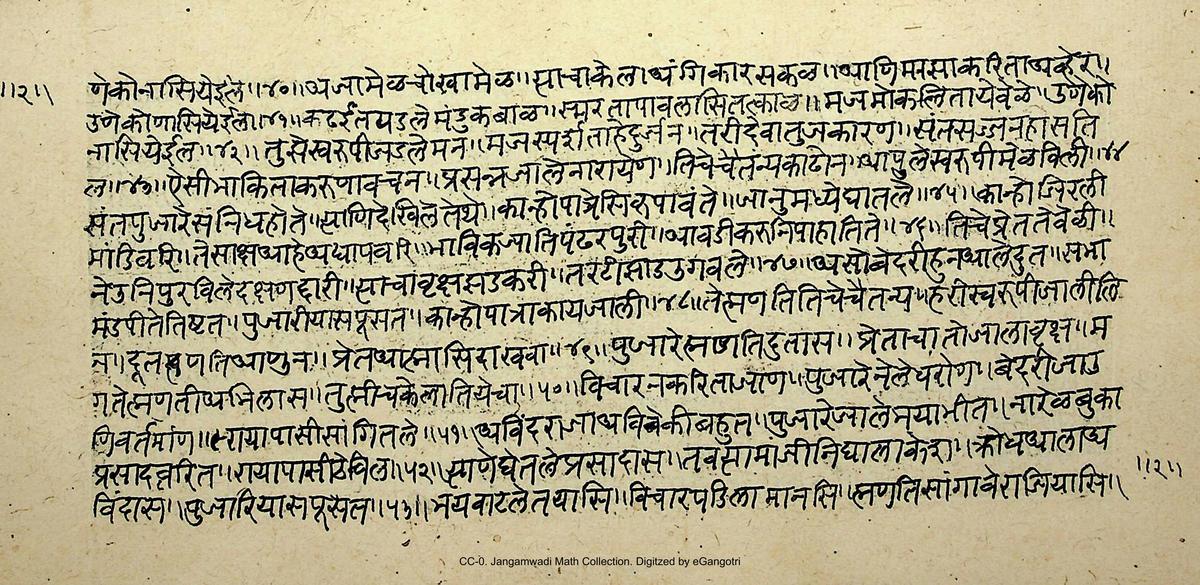 ॥२॥
णेकोनासियेईल॥४०॥अजामेळचोखामेळ॥त्याचाकेलाअंगिकारसकळ॥आणिमासाकरिताअव्हेर॥
उणेकोणासियेईल॥४१॥कढईतपडलेमंडुकबाळ॥स्मरतापावलासितत्काळ॥मजमोकलितायेवेळ॥उणेको
नासियेईल॥४२॥तुझेस्वरुपीजडलेमन॥मजस्पर्शताहेदुर्जन॥तरीदेवातुजकारण॥संतसज्जनहासति
ल॥४३॥ऐसीभाकिलाकरुणावचन॥प्रसन्नजालेनारायेण॥तिचेचैतन्यकाढोन॥आपुलेस्वरुपीमेळविली॥४४
संतपुजारेसंनिधहोते॥त्याणिदेखिलेतेथे॥कान्होपात्रेसिकृपावंते॥जानुमध्येघातले॥४५॥कान्होजिरली
मांडिवरि॥तैसाक्षआहेअद्यापवरि॥भाविकजातिपंढरपुरी॥आवडीकरुनिपाहातिते॥४६॥तिचेप्रेततेवेळी॥
नेउनिपुरविलेदक्षणद्वारी॥त्याचावृक्षझडकरी॥तरटीझाडउगवले॥४७॥असोबेदरीहुनआलेदुत॥सभा
मंडपीतेतिष्टत॥पुजारीयासपूसत॥कान्होपात्राकायजाली॥४८॥तेह्मणतितिचेचैतन्य॥हरीस्वरुपीजालीलि
न॥दूतह्मणतिआणुन॥प्रेतआह्मासिदाखवा॥४९॥पुजारेह्मणतिदुतास॥प्रेताचातोजालावृक्ष॥म
गतेह्मणतीअभिलास॥तुह्मीचकेलातियेचा॥५०॥विचारनकरिताजाण॥पुजारेनेलेधरोण॥बेदरीजाउ
णिवर्तमांण॥रायापासीसांगितले॥५१॥अविंदराजाअविवेकीबहुत॥पुजारेजालेभयाभीत॥नारेळबुका
प्रसादत्वरित॥रायापासीठेविला॥५२॥त्याणेघेतलेप्रसादास॥तवत्यामाजीनिघालाकेश॥क्रोधआलाअ
विंदास॥पुजारियासपूसेल॥५३॥भयवाटलेतयासि॥विचारपडिलामानसि॥ह्मणतिसांगावेराजियासि॥
॥२॥
CC-0. Jangamwadi Math Collection. Digitzed by eGangotri